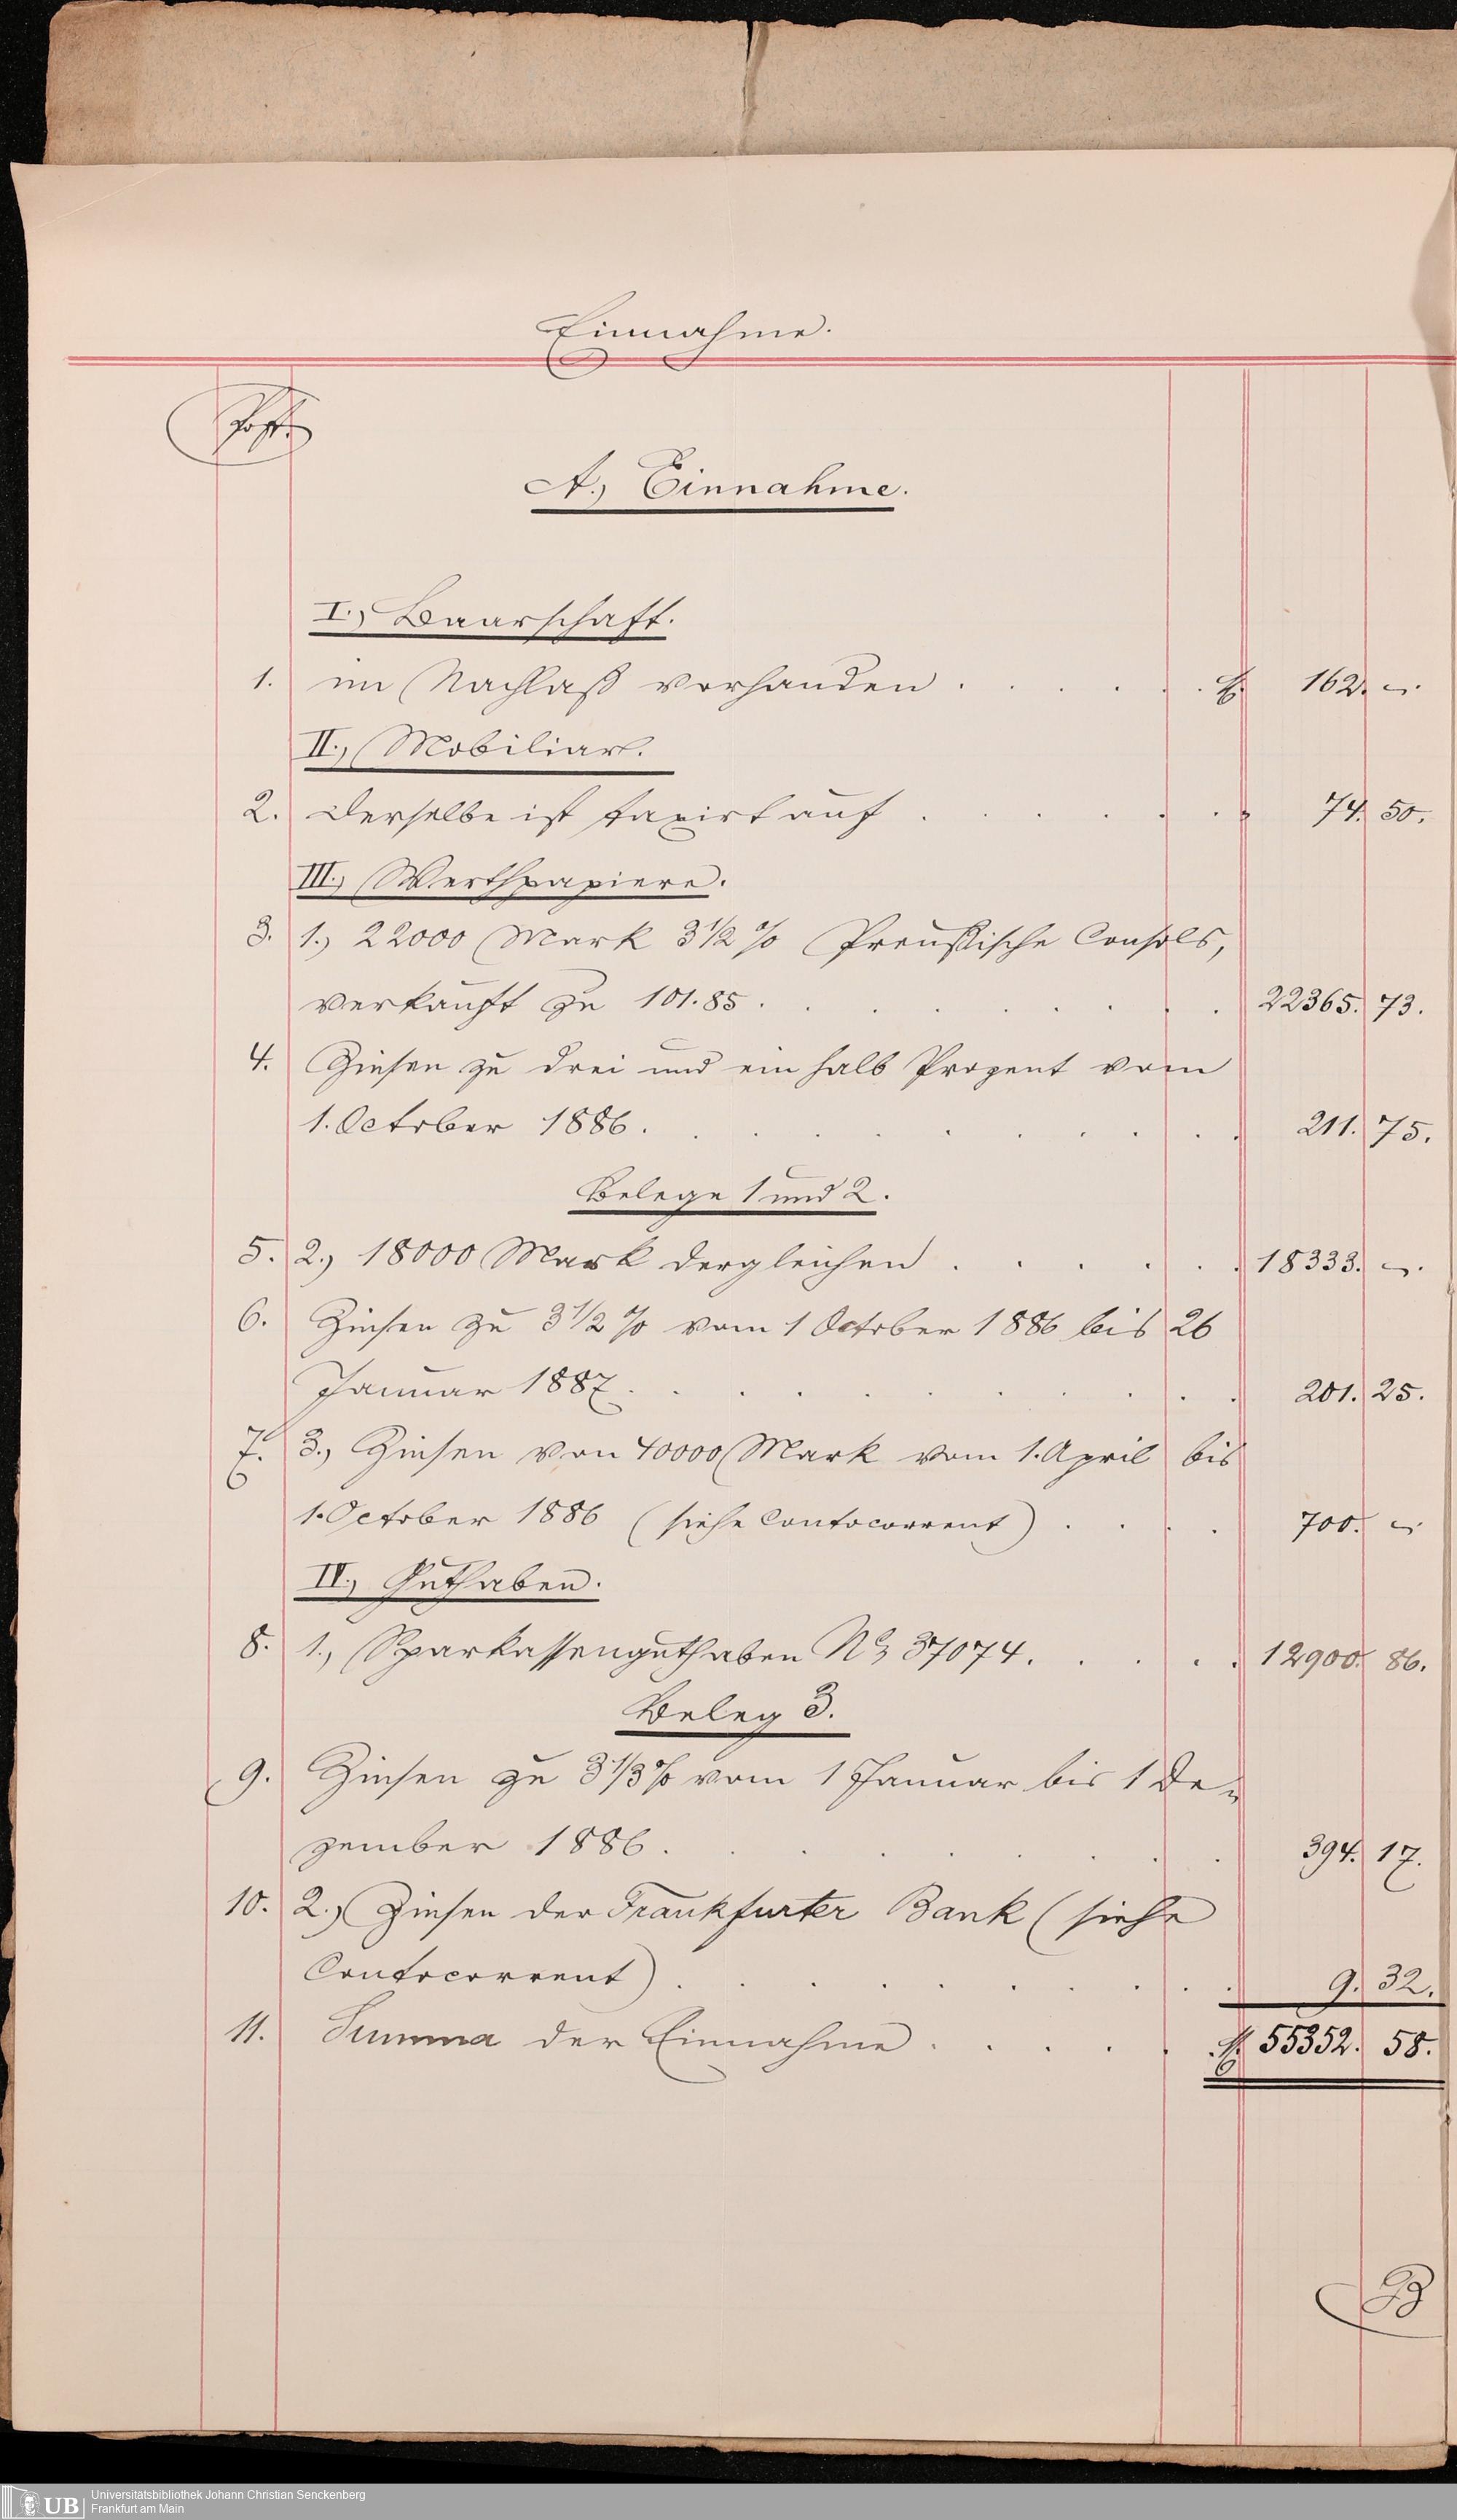 Einnahme.
Post.
A.) Einnahme.
I.) Baarschaft.
1. im Nachlaß vorhanden . . . . . M. 162. –.
II.) Mobiliar.
2. Derselbe ist taxirt auf . . . . . „ 74. 50.
III.) Werthpapiere.
3. 1.) 22000 Mark 3 1/2 % Preußische Consols,
verkauft zu 101.85 . . . . . . . . 22365. 73.
4. Zinsen zu drei und ein halb Prozent vom
1. October 1886 . . . . . . . . . 211. 75.
Belege 1 und 2.
5. 2.) 18000 Mark dergleichen . . . . . . 18333. –.
6. Zinsen zu 3 1/2 % vom 1 October 1886 bis 26
Januar 1887. . . . . . . . . . 201. 25.
7. 3.) Zinsen von 40000 Mark vom 1. April bis
1. October 1886 (siehe Contocorrent) . . . . 700. –.
IV.) Guthaben.
8. 1.) Sparkassenguthaben No 37074. . . . . 12900. 86.
Beleg 3.
9. Zinsen zu 3 1/3 % vom 1 Januar bis 1 De„
zember 1886. . . . . . . . . 394. 17.
10. 2.) Zinsen der Frankfurter Bank (siehe
Contocorrent) . . . . . . . . . 9. 32.
11. Summa der Einnahme . . . . . M. 55352. 58.
B
UB Universitätsbibliothek Johann Christian Senckenberg
Frankfurt am Main